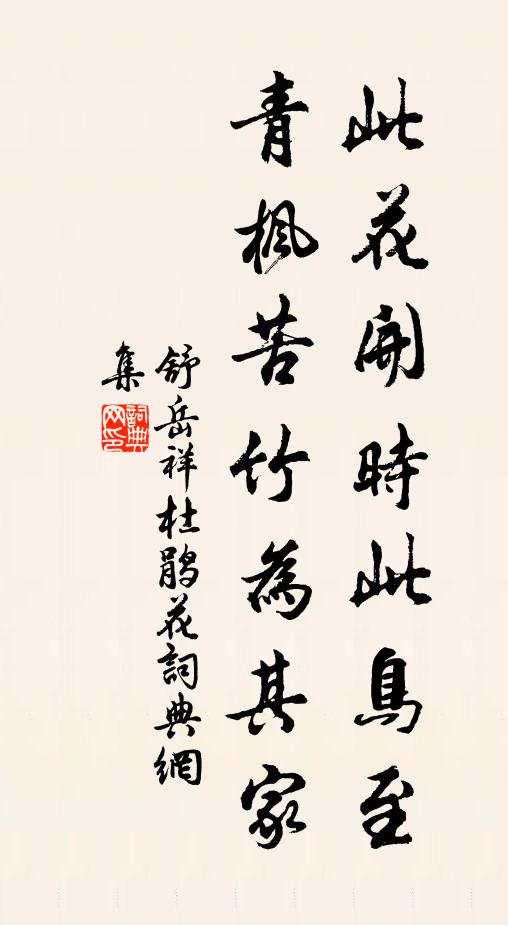 此花開時此鳥至
青楓苦竹為其家
舒岳祥杜鵑花詞典網
集
詞典網印